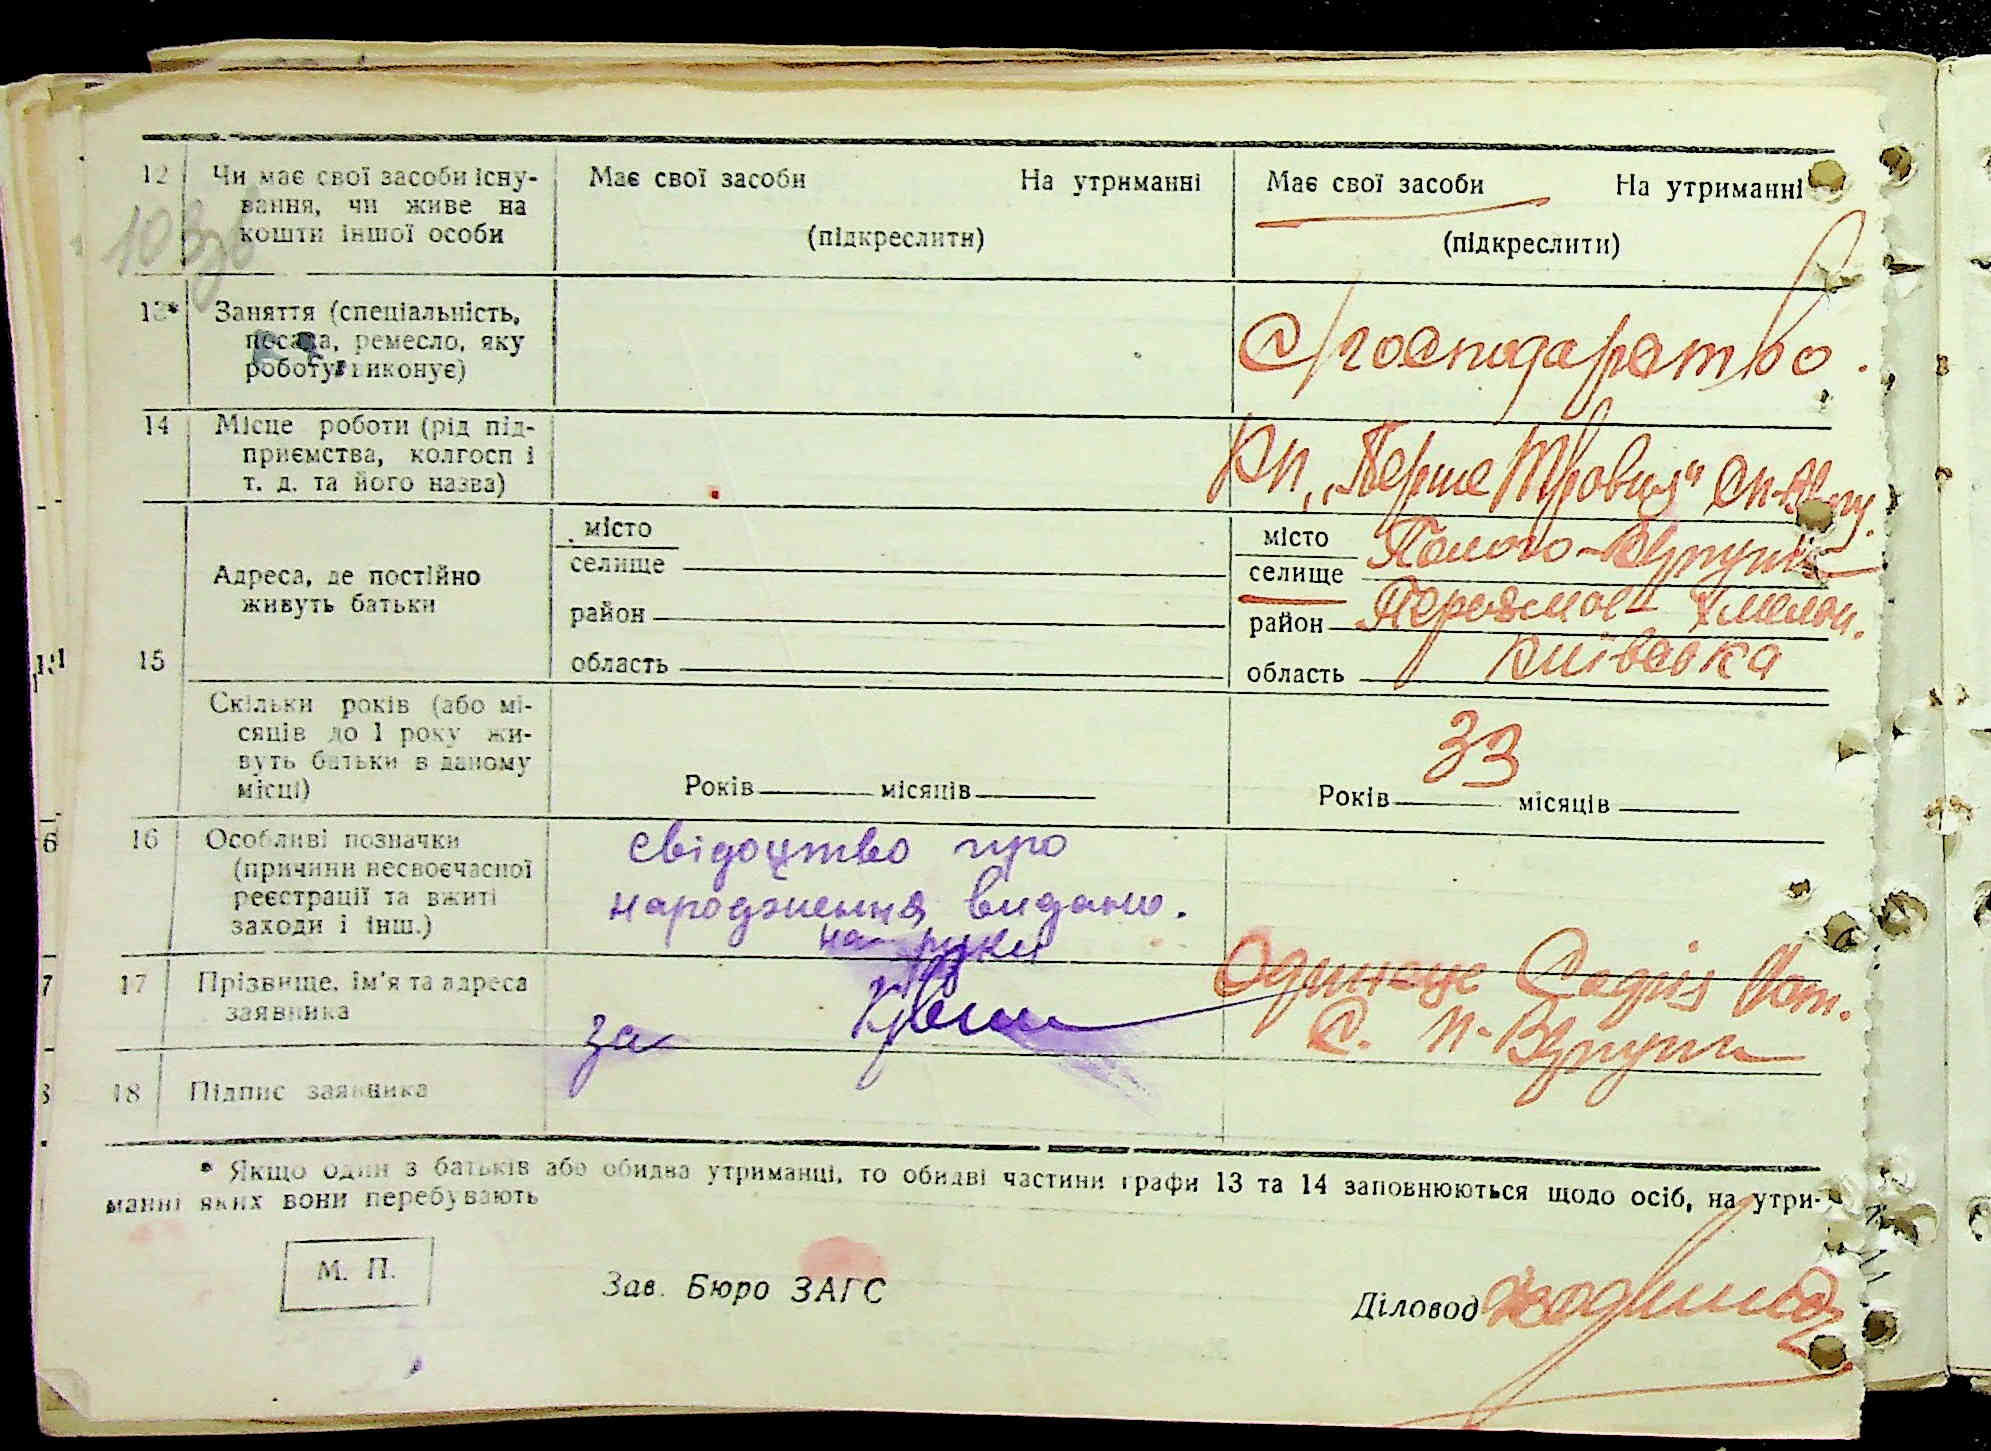 12 Чи має свої засоби існу-
вання, чи живе на
кошти іншої особи
Має свої засоби На утриманні
(підкреслити)
Має свої засоби На утриманні
(підкреслити)
13* Заняття (спеціальність,
посада, ремесло, яку
роботу виконує)
с/господарство.
14 Місце роботи (рід під-
приємства, колгосп і
т. д. та його назва)
"Перше Травня"
15 Адреса, де постійно
живуть батьки
місто
селище
район
область
місто Полого-Вергуни
селище
район Переяслав-Хмельн.
область Київська
Скільки років (або мі-
сяців до 1 року жи-
вуть батьки в даному
місці)
Років місяців
33
Років місяців
16 Особливі позначки
(причини несвоєчасної
реєстрації та вжиті
заходи і інш.)
свідоцтво про
народження видано.
на руки
17 Прізвище, ім'я та адреса
заявника
за
Одинець
с. П-Вергуни
18 Підпис заявника
* Якщо один з батьків або обидва утриманці, то обидві частини графи 13 та 14 заповнюються щодо осіб, на утри-
манні яких вони перебувають
М. П.
Зав. Бюро ЗАГС
Діловод